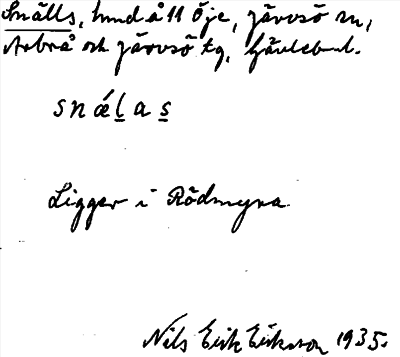 Snälls, hmd å 11 Öje, Järvsö sn,
Arbrå och Järvsö tg, Gävlebul.
snǽl̲as̲
Ligger i Rödmyra.
Nils Erik Eriksson 1935.